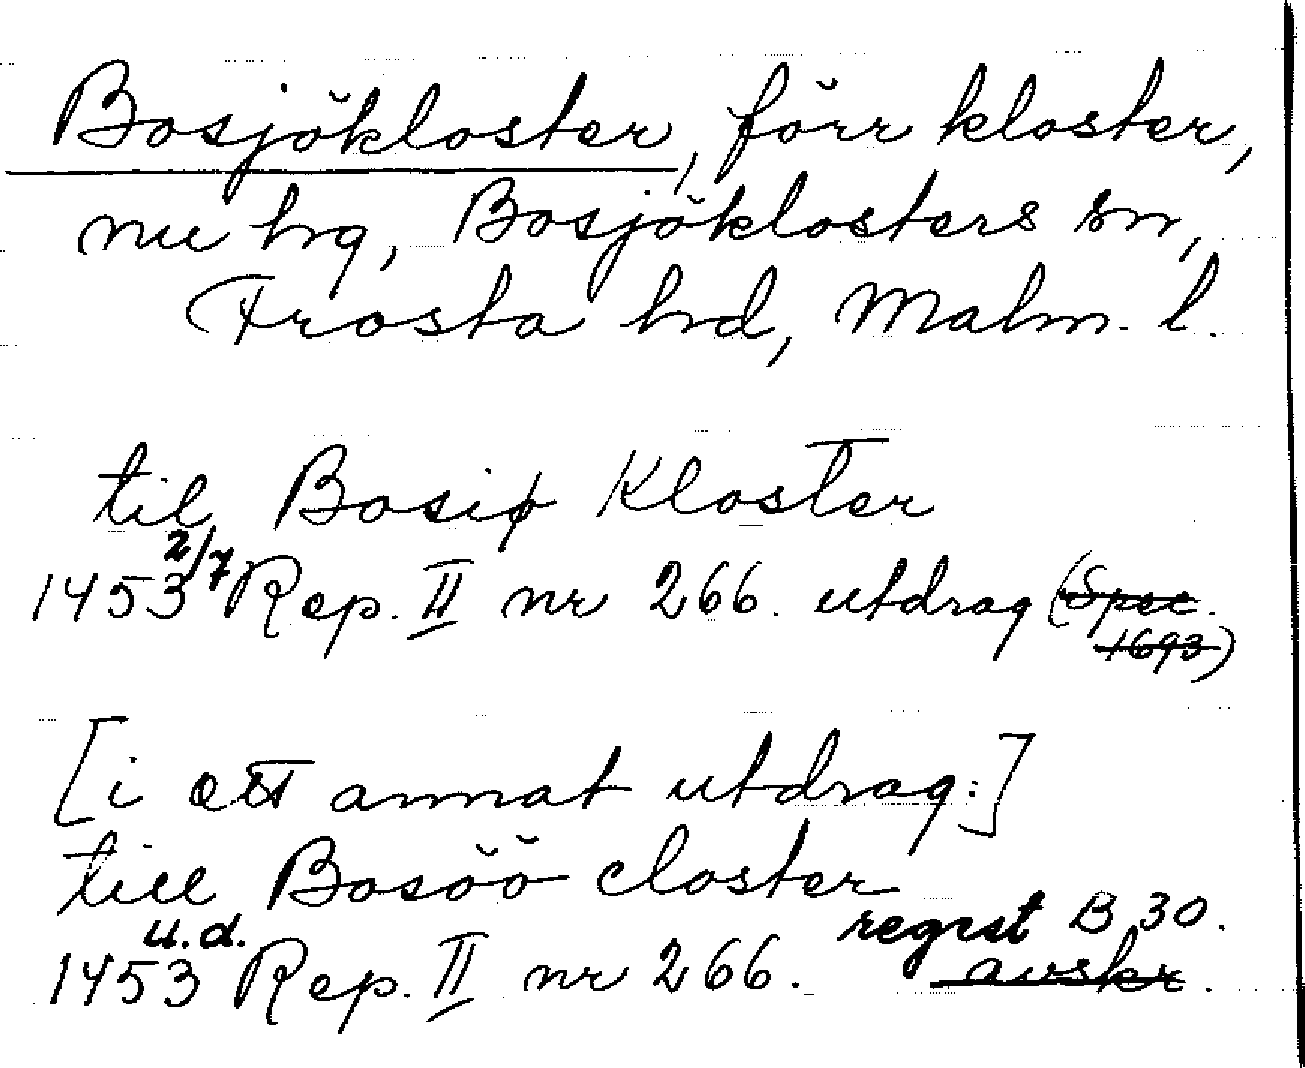 Bosjökloster, förr kloster,
nu hg, Bosjöklosters sn,
Frosta hd, Malm. l.
til Bosiø Kloster
1453 2/7 Rep. II nr 266. utdrag (Spec.
1693)
[i ett annat utdrag:]
till Bosöö closter
1453 u.d. Rep. II nr 266. regest B 30.
avskr.